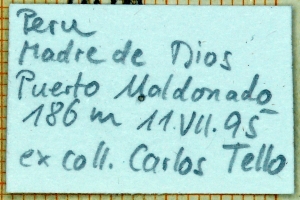 Peru
Madre de Dios
Puerto Maldonado
186 m 11.VII.95
ex coll. Carlos Tello